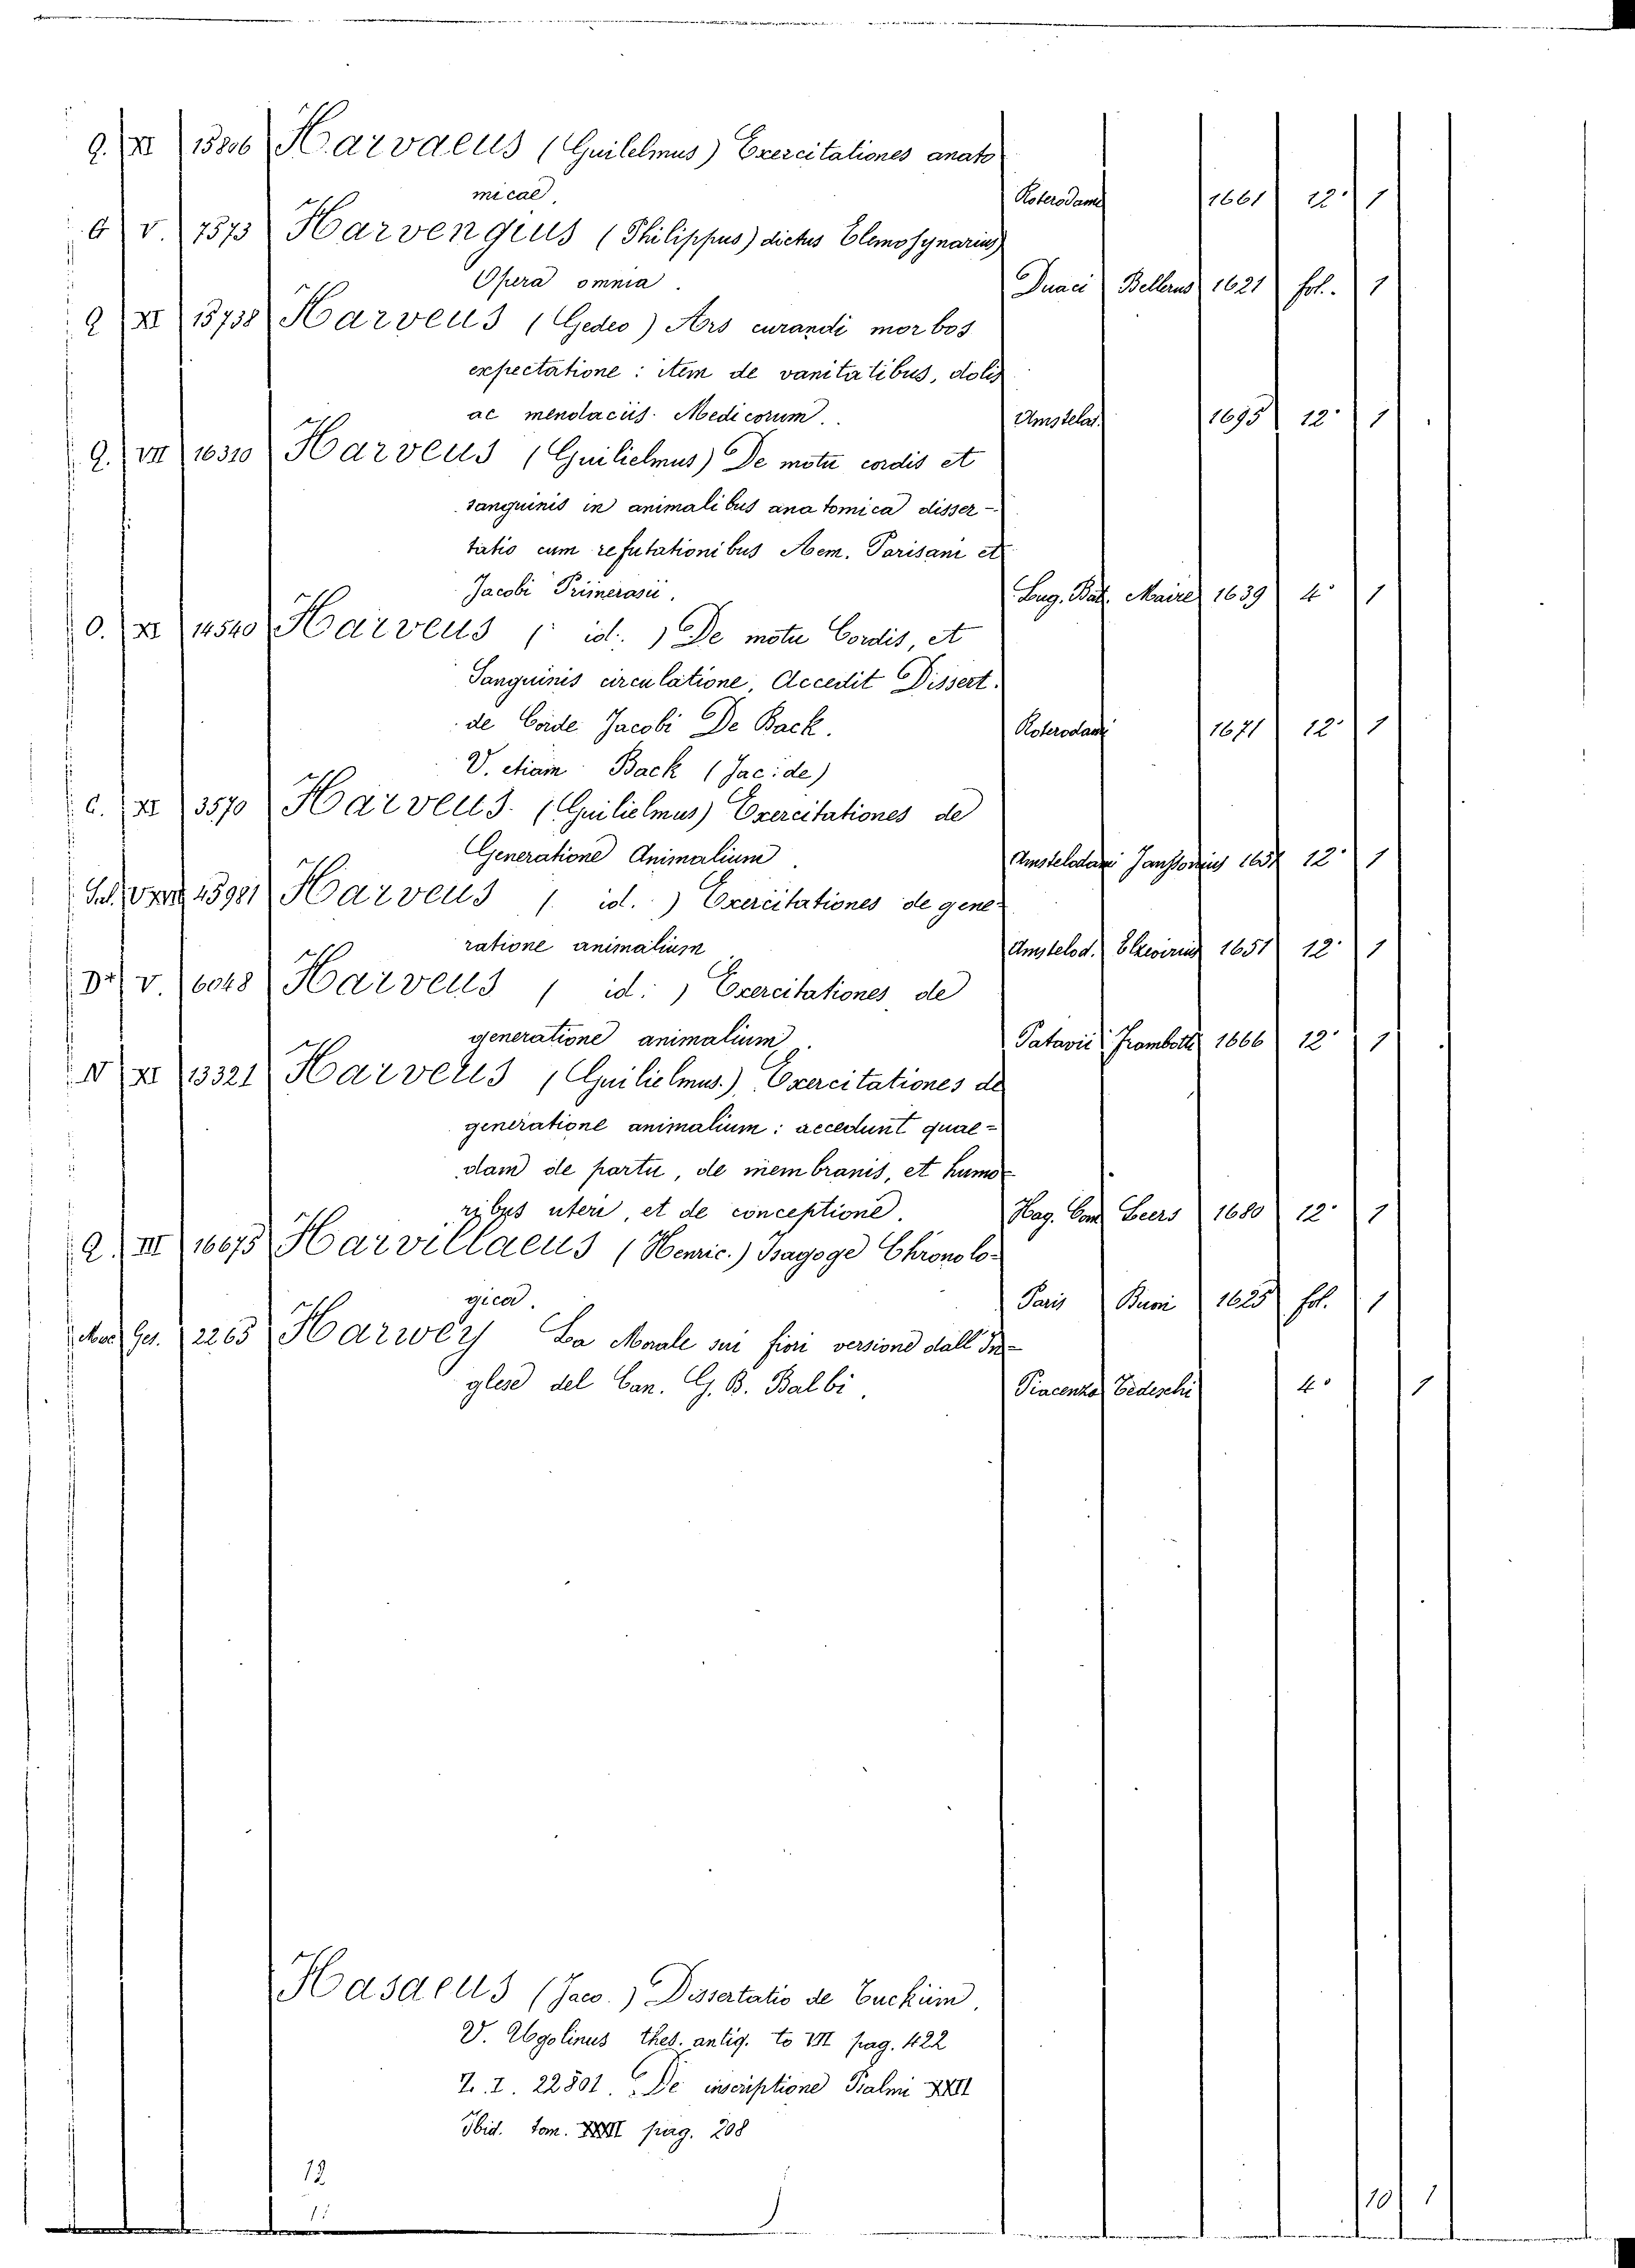 Q. XI 15806 Harvaeus (Guilelmus) Exercitationes anato
micae. Roterodami 1661 12° 1
G V. 7573 Harvengius (Philippus) dictus Elemosynarius
Opera omnia. Duaci Bellerus 1621 fol. 1
Q XI 15738 Harveus (Gedeo) Ars curandi morbos
expectatione: item de vanitatibus, dolis
ac mendaciis Medicorum. Amstelod. 1695 12° 1
Q. VII 16310 Harveus (Guilielmus) De motu cordis et
sanguinis in animalibus anatomica disser-
tatio cum refutationibus Aem. Parisani et
Jacobi Primerasii. Lug. Bat. Maire 1639 4° 1
O. XI 14540 Harveus (id.) De motu Cordis, et
Sanguinis circulatione, Accedit Dissert.
de Corde Jacobi De Back. Roterodami 1671 12° 1
V. etiam Back (Jac: de)
C. XI 3570 Harveus. (Guilielmus) Exercitationes de
Generatione Animalium. Amstelodami Janssonius 1651 12° 1
45981 Harveus (id.) Exercitationes de gene-
ratione animalium Amstelod. Elzevirius 1651 12° 1
V. 6048 Harveus (id:) Exercitationes de
generatione animalium. Patavii Frambotti 1666 12° 1
N XI 13321 Harveus (Guilielmus.) Exercitationes de
generatione animalium: accedunt quae-
dam de partu, de membranis, et humo-
ribus uteri, et de conceptione. Hag. Com Leers 1680 12° 1
Q. III 16675 Harvillaeus (Henric.) Isagoge Chronolo-
gica. Paris Buon 1625 fol. 1
Ges. 2265 Harwey La Morale sui fiori versione dall'In-
glese del Can. G. B. Balbi. Piacenza Tedeschi 4° 1
Hasaeus (Jaco.) Dissertatio de Euckiim.
V. Ugolinus thes. antiq. to VII pag. 422
Z. I. 22801. De inscriptione Psalmi XXII
Ibid. tom. XXXII pag. 208
12
1: 10 1